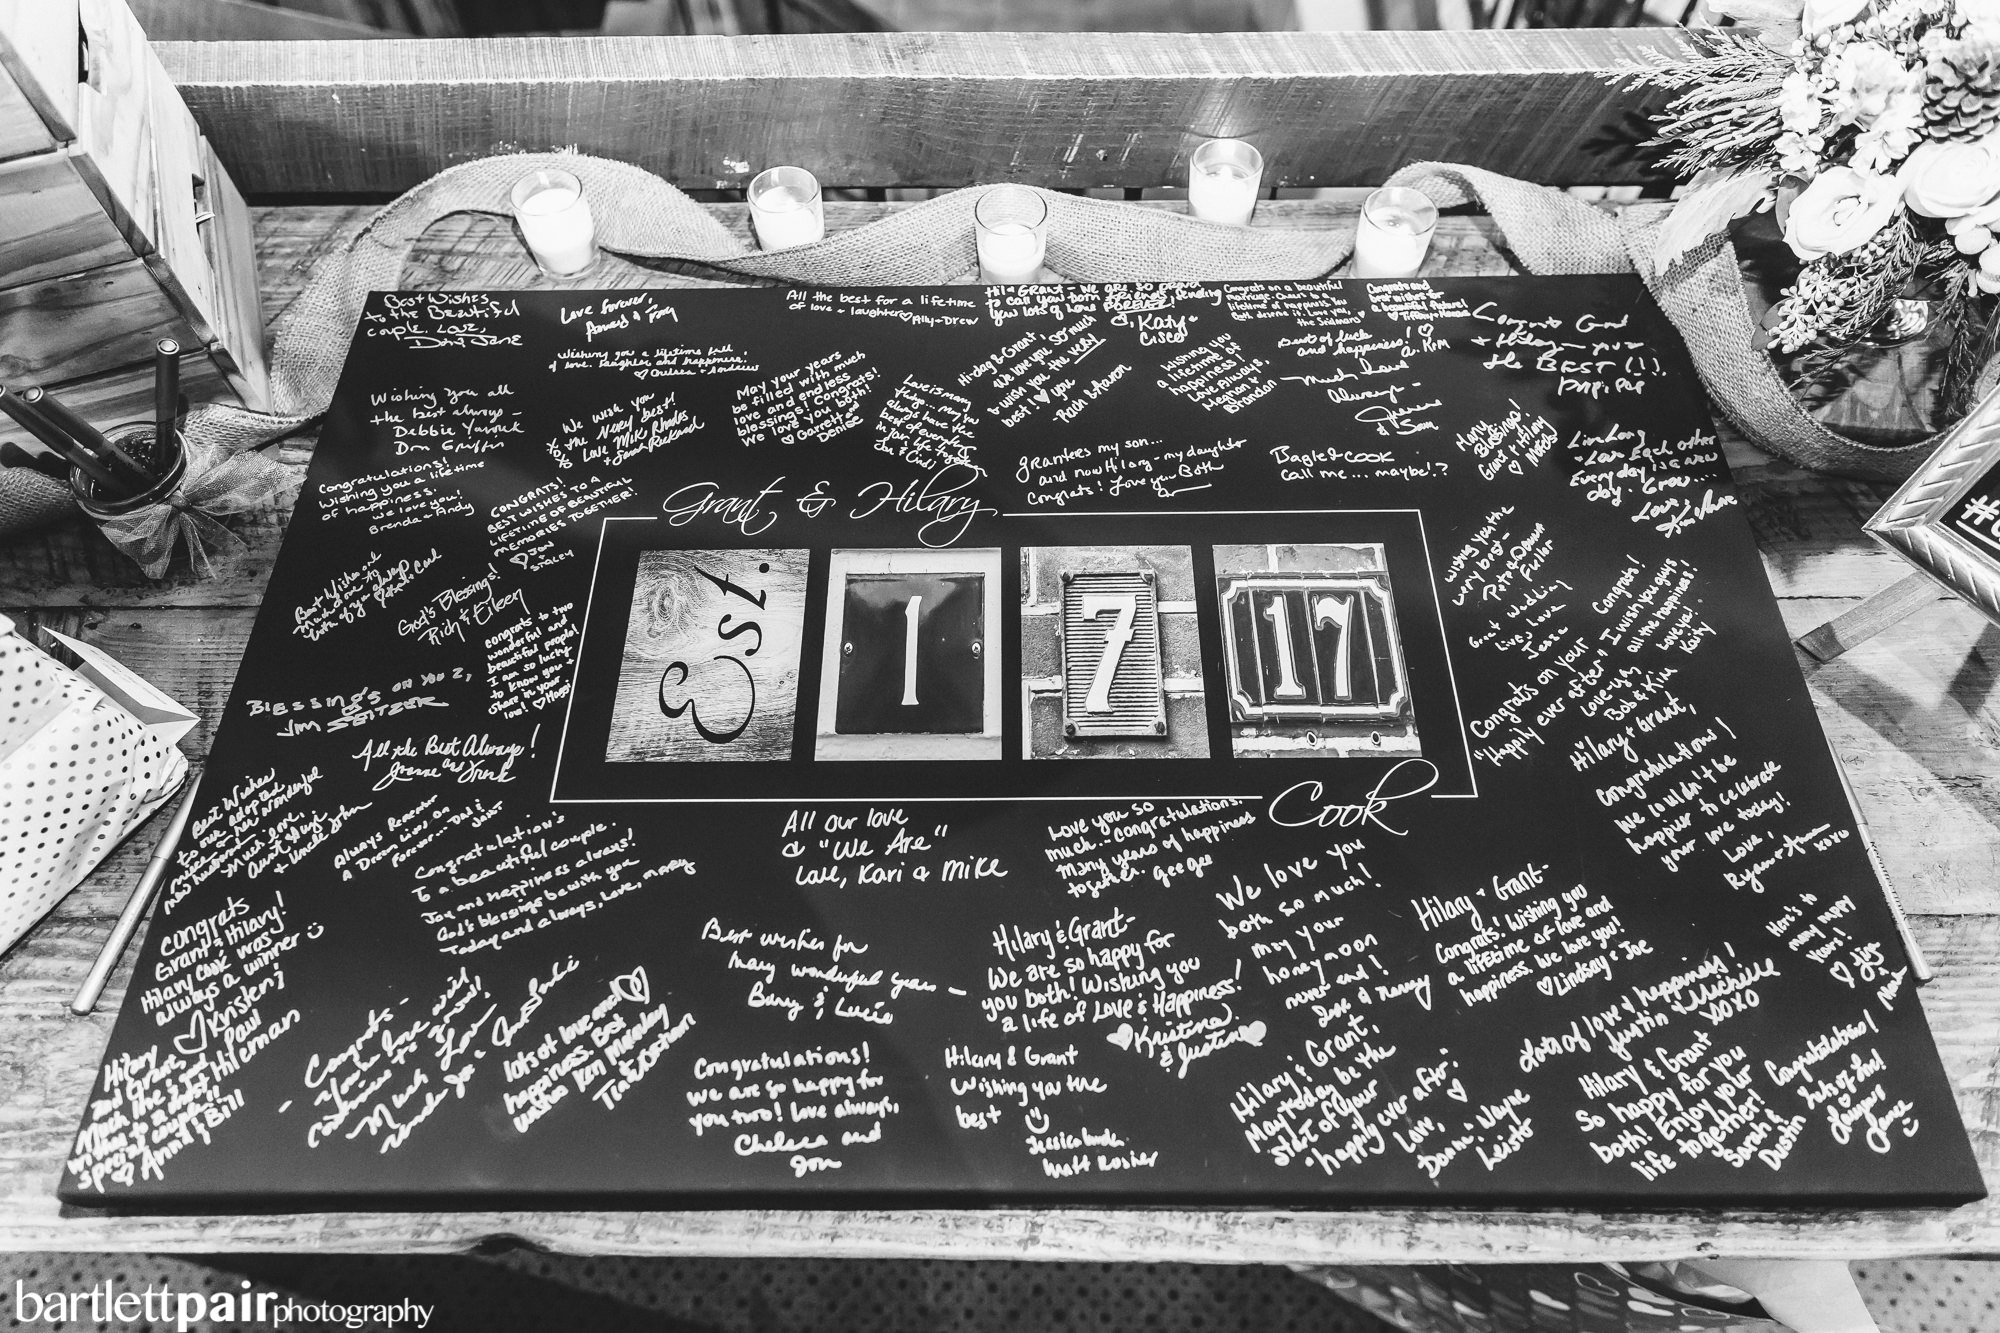 Best Wishes
to the Beautiful
couple. Love,
Love forever,
All the best for a lifetime
of love + laughter Ally + Drew
Hil + Grant - we are so proud
to call you both friends. Sending
you lots of love FOREVER!
Katy +
Cisco
Congrats on a beautiful
Congrats and
best wishes for
a beautiful future!
Congrats Grant
+ Hilary - you're
the BEST (!).
Wishing you a lifetime full
of love, laughter and happiness.
Chelsea + Andrew
May your years
be filled with much
love and endless
blessings! Congrats!
We love you both!
Garrett and
Denise
Hi-dog & Grant,
We love you so much
& wish you the very
best! love you
Wishing you
a lifetime of
happiness!
Love Always,
Megan &
Brandon
Best of luck
and happiness!
Much love
always -
& Sam
Wishing you all
the best always -
Debbie
We wish you
the very best!
Love Mik Rhodes
Love is many
things... may you
always have the
best of everything
in your life together
grantees my son...
and now Hilary - my daughter
Congrats! Love you Both
Bagle & COOK
call me... maybe!?
Many
Blessings!
Grant & Hilary
Live Long
+ Love Each other
Everyday is a new
day. Grow...
Love,
Congratulations!
Wishing you a lifetime
of happiness.
We love you!
Brenda + Andy
CONGRATS!
BEST WISHES TO A
LIFETIME OF BEAUTIFUL
MEMORIES TOGETHER!
JON
STACEY
Grant & Hilary
Est. 1 7 17
Cook
Best Wishes and
God's Blessings!
Rich & Eileen
congrats to two
wonderful and
beautiful people!
I am so lucky
to know you +
share in your
love! Maggi
Wishing you the
very best -
Pete & Dawn
Fuller
Great wedding
live, love
Jesse
Congrats!
I wish you guys
all the happiness!
Love ya!
Kaity
BLESSINGS ON YOU 2,
JIM SEITZER
Congrats on your
"Happily ever after"
Love ya,
Bob & Kim
All the Best Always!
Joanne and Frank
Hilary + Grant,
Congratulations!
We couldn't be
happier to celebrate
your love today!
Love,
Ryan + Anna
xoxo
Best Wishes
to our adopted
niece + her wonderful
new husband
Much love,
Aunt Suzi
+ Uncle John
Always Remember
A Dream lives on
Forever... Dali
Congratulations
To a beautiful couple.
Joy and happiness always!
God's blessings be with you
Today and always, Love, Marky
All our love
& "We Are"
Love, Kari & Mike
Love you so
much - Congratulations.
many years of happiness
together. gee gee
We love you
both so much!
May your
honeymoon
never end!
Congrats
Grant & Hilary!
Hilary Cook was
always a winner
Kristen
Best wishes for
many wonderful years -
Barry & Lucie
Hilary & Grant -
We are so happy for
you both! Wishing you
a life of Love & Happiness!
Kristina
& Justin
Hilary + Grant -
Congrats! Wishing you
a lifetime of love and
happiness. We love you!
Lindsay + Joe
Here's to
many happy
years!
Hilary
and Grant,
Much love and
wishes to a most
special couple!!
Ann & Bill
Paul
Hileman
Congrats -
your love will
continue to grow!
Much Love
lots of love and
happiness. Best
wishes Ken Maladay
Congratulations!
We are so happy for
you two! Love always,
Chelsea and
Jon
Hilary & Grant
Wishing you the
best
Matt Rosher
Hilary & Grant,
May today be the
start of your
"happily ever after."
Love,
Donna & Wayne
Leister
Lots of love & happiness!
Justin & Michelle
XOXO
Hilary & Grant
So happy for you
both! Enjoy your
life together!
Sarah &
Dustin
Congratulations!
bartlettpairphotography